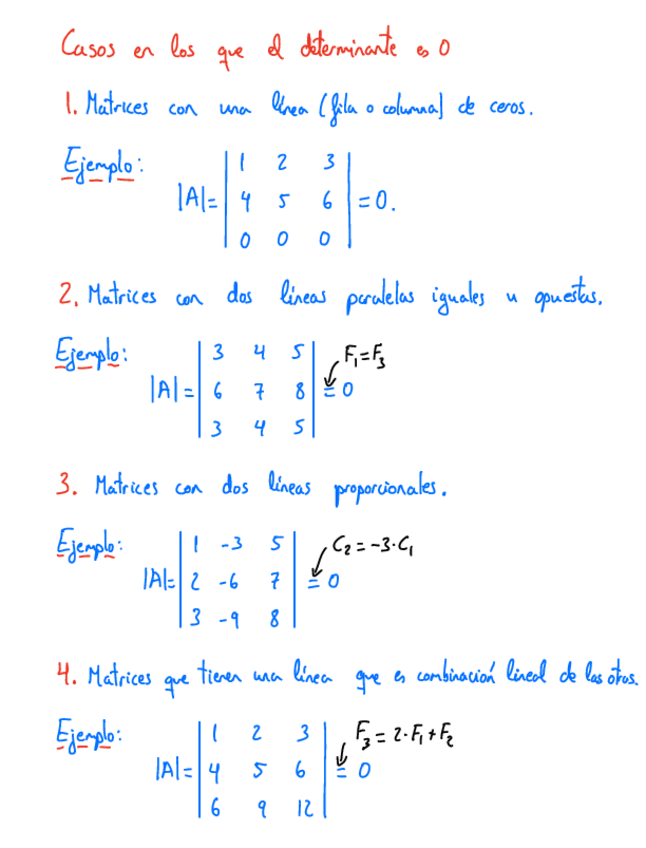 Casos en los que el determinante es 0
1. Matrices con una línea (fila o columna) de ceros.
Ejemplo:
1 2 3
|A|= 4 5 6 =0.
0 0 0
2. Matrices con dos líneas paralelas iguales u opuestas.
Ejemplo:
3 4 5 F₁=F₃
|A|= 6 7 8 = 0
3 4 5
3. Matrices con dos líneas proporcionales.
Ejemplo:
1 -3 5 C₂=-3·C₁
|A|= 2 -6 7 = 0
3 -9 8
4. Matrices que tienen una línea que es combinación lineal de las otras.
Ejemplo:
1 2 3 F₃=2·F₁+F₂
|A|= 4 5 6 = 0
6 9 12